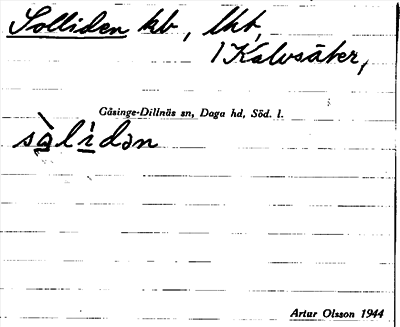 Solliden kb, lht,
1 Kalvsäter,
Gåsinge-Dillnäs sn, Daga hd, Söd. l.
sàlìdən
Artur Olsson 1944